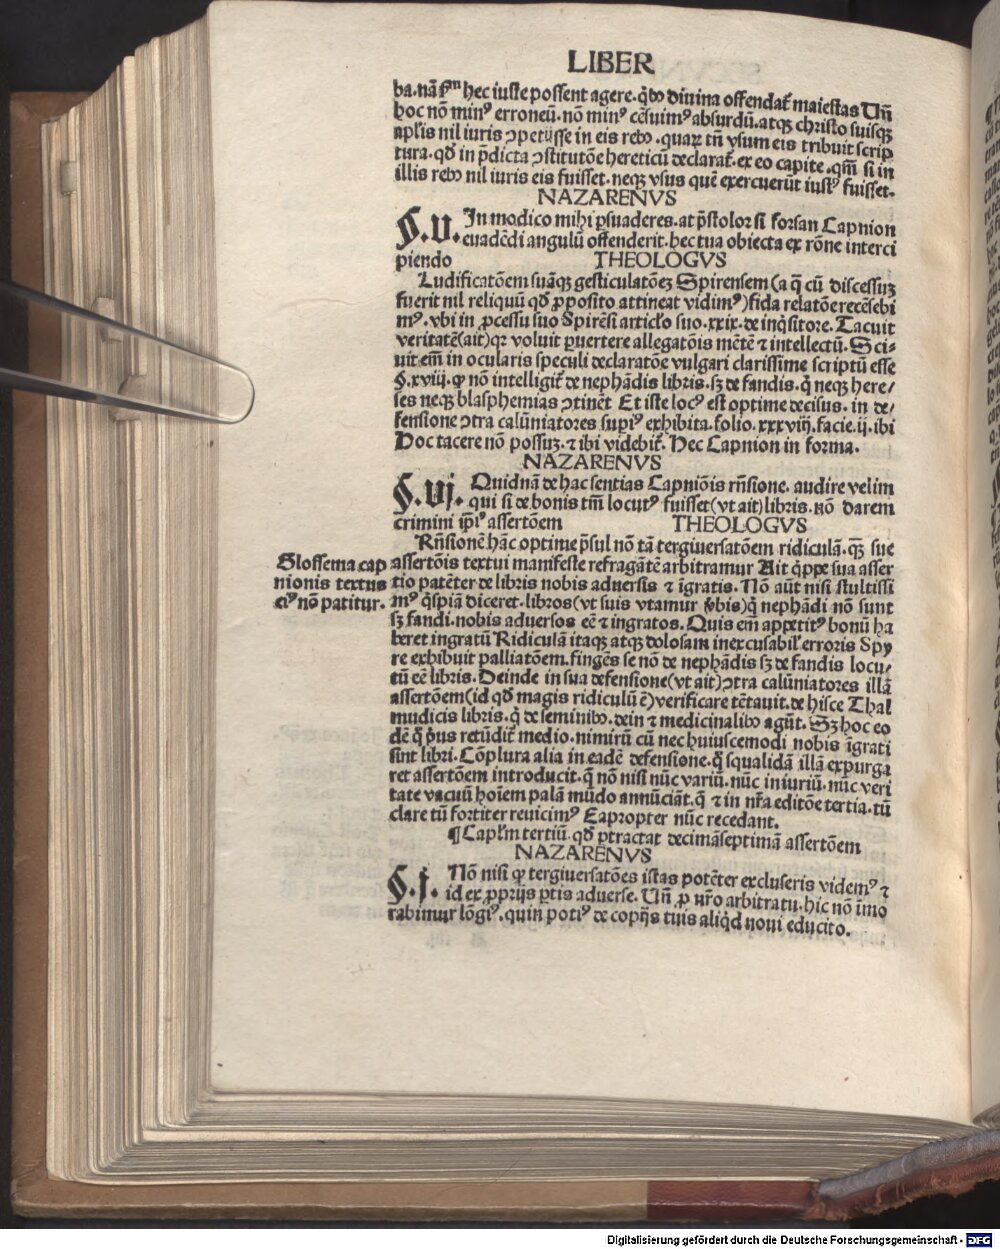 LIBER
ba. nã ẜm̃ hec iuste possent agere. q̃bꝰ diuina offendat̃ maiestas Uñ
hoc nõ minꝰ erroneũ. nõ minꝰ cẽsuimꝰ absurdũ. atqꝫ christo suisqꝫ
apl̃is nil iuris ꝯpetijsse in eis rebꝰ. quaꝝ tñ vsum eis tribuit scrip
tura. qď in p̃dicta ꝯstitutõe hereticũ declarat̃. ex eo capite. qm̃ si in
illis rebꝰ nil iuris eis fuisset. neqꝫ vsus quẽ exercuerũt iustꝰ fuisset.
NAZARENVS
§.U. In modico mihi ꝑsuaderes. at p̃stolor si forsan Capnion
euadẽdi angulũ offenderit. hec tua obiecta ex rõne interci
piendo THEOLOGVS
Ludificatõem suãqꝫ gesticulatõeꝫ Spirensem (a q̃ cũ discessuꝫ
fuerit nil reliquũ qď ꝓposito attineat vidimꝰ) fida relatõe recẽsebi
mꝰ. vbi in ꝓcessu suo Spirẽsi articľo suo. xxix. de inq̃sitore. Tacuit
veritatẽ (ait) qꝛ voluit ꝑuertere allegatõis mẽtẽ ⁊ intellectũ. Sci⸗
uit em̃ in ocularis speculi declaratõe vulgari clarissime scriptũ esse
§. xviij. ꝙ nõ intelligit̃ de nephãdis libris. sꝫ de fandis. q̃ neqꝫ here⸗
ses neqꝫ blasphemias ꝯtinẽt Et iste locꝰ est optime decisus. in de⸗
fensione ꝯtra calũniatores supiꝰ exhibita. folio. xxxviij. facie. ij. ibi
Hoc tacere nõ possuꝫ. ⁊ ibi videbit̃. Hec Capnion in forma.
NAZARENVS
§.Uj. Quidnã de hac sentias Capniõis rñsione. audire velim
qui si de bonis tm̃ locutꝰ fuisset (vt ait) libris. nõ darem
crimini ip̃iꝰ assertõem THEOLOGVS
Rñsionẽ hãc optime p̃sul nõ tã tergiuersatõem ridiculã. qꝫ sue
Glossema cap
nionis textus
eiꝰ nõ patitur.
assertõis textui manifeste refragãtẽ arbitramur Ait q̃ppe sua asser
tio patẽter de libris nobis aduersis ⁊ ĩgratis. Nõ aũt nisi stultissi
mꝰ q̃spiã diceret. libros (vt suis vtamur v̾bis) q̃ nephãdi nõ sunt
sꝫ fandi. nobis aduersos eẽ ⁊ ingratos. Quis em̃ appetitꝰ bonũ ha
beret ingratũ Ridiculã itaqꝫ atqꝫ dolosam inexcusabiľ erroris Spy
re exhibuit palliatõem. fingẽs se nõ de nephãdis sꝫ de fandis locu⸗
tũ eẽ libris. Deinde in sua defensione (vt ait) ꝯtra calũniatores illã
assertõem (id qď magis ridiculũ ẽ) verificare tẽtauit. de hisce Thal
mudicis libris. q̃ de seminibꝰ. dein ⁊ medicinalibꝰ agũt. Sꝫ hoc eo
dẽ q̃ pꝰus retũdit̃ medio. nimirũ cũ nec huiuscemodi nobis ĩgrati
sint libri. Cõplura alia in eadẽ defensione. q̃ squalidã illã expurga
ret assertõem introducit. q̃ nõ nisi nũc variũ. nũc iniuriũ. nũc veri
tate vacuũ hoĩem palã mũdo annũciãt. q̃ ⁊ in nr̃a editõe tertia. tũ
clare tũ fortiter reuicimꝰ Eapropter nũc recedant.
¶ Capľm tertiũ. qď ꝑtractat decimãseptimã assertõem
NAZARENVS
§.j. Nõ nisi ꝙ tergiuersatões istas potẽter excluseris videmꝰ ⁊
id ex ꝓprijs ꝑtis aduerse. Uñ ꝓ nr̃o arbitratu. hic nõ ĩmo
rabimur lõgiꝰ. quin potiꝰ de copijs tuis aliq̃d noui educito.
Digitalisierung gefördert durch die Deutsche Forschungsgemeinschaft - DFG